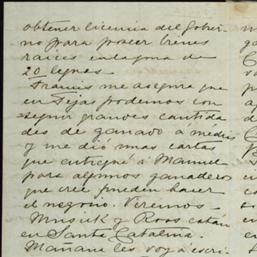 obtener licencia del Gobier-
no para poseer bienes
raices en la zona de
20 leguas.
Francis me asegura que
en Tejas podemos con
seguir grandes cantida
des de ganado a medias
y me dió unas cartas
que entregué á Manuel
para algunos ganaderos
que cree pueden hacer
el negocio. Veremos
Musick y Roos están
en Santa Catalina.
Mañana les voy á escri-